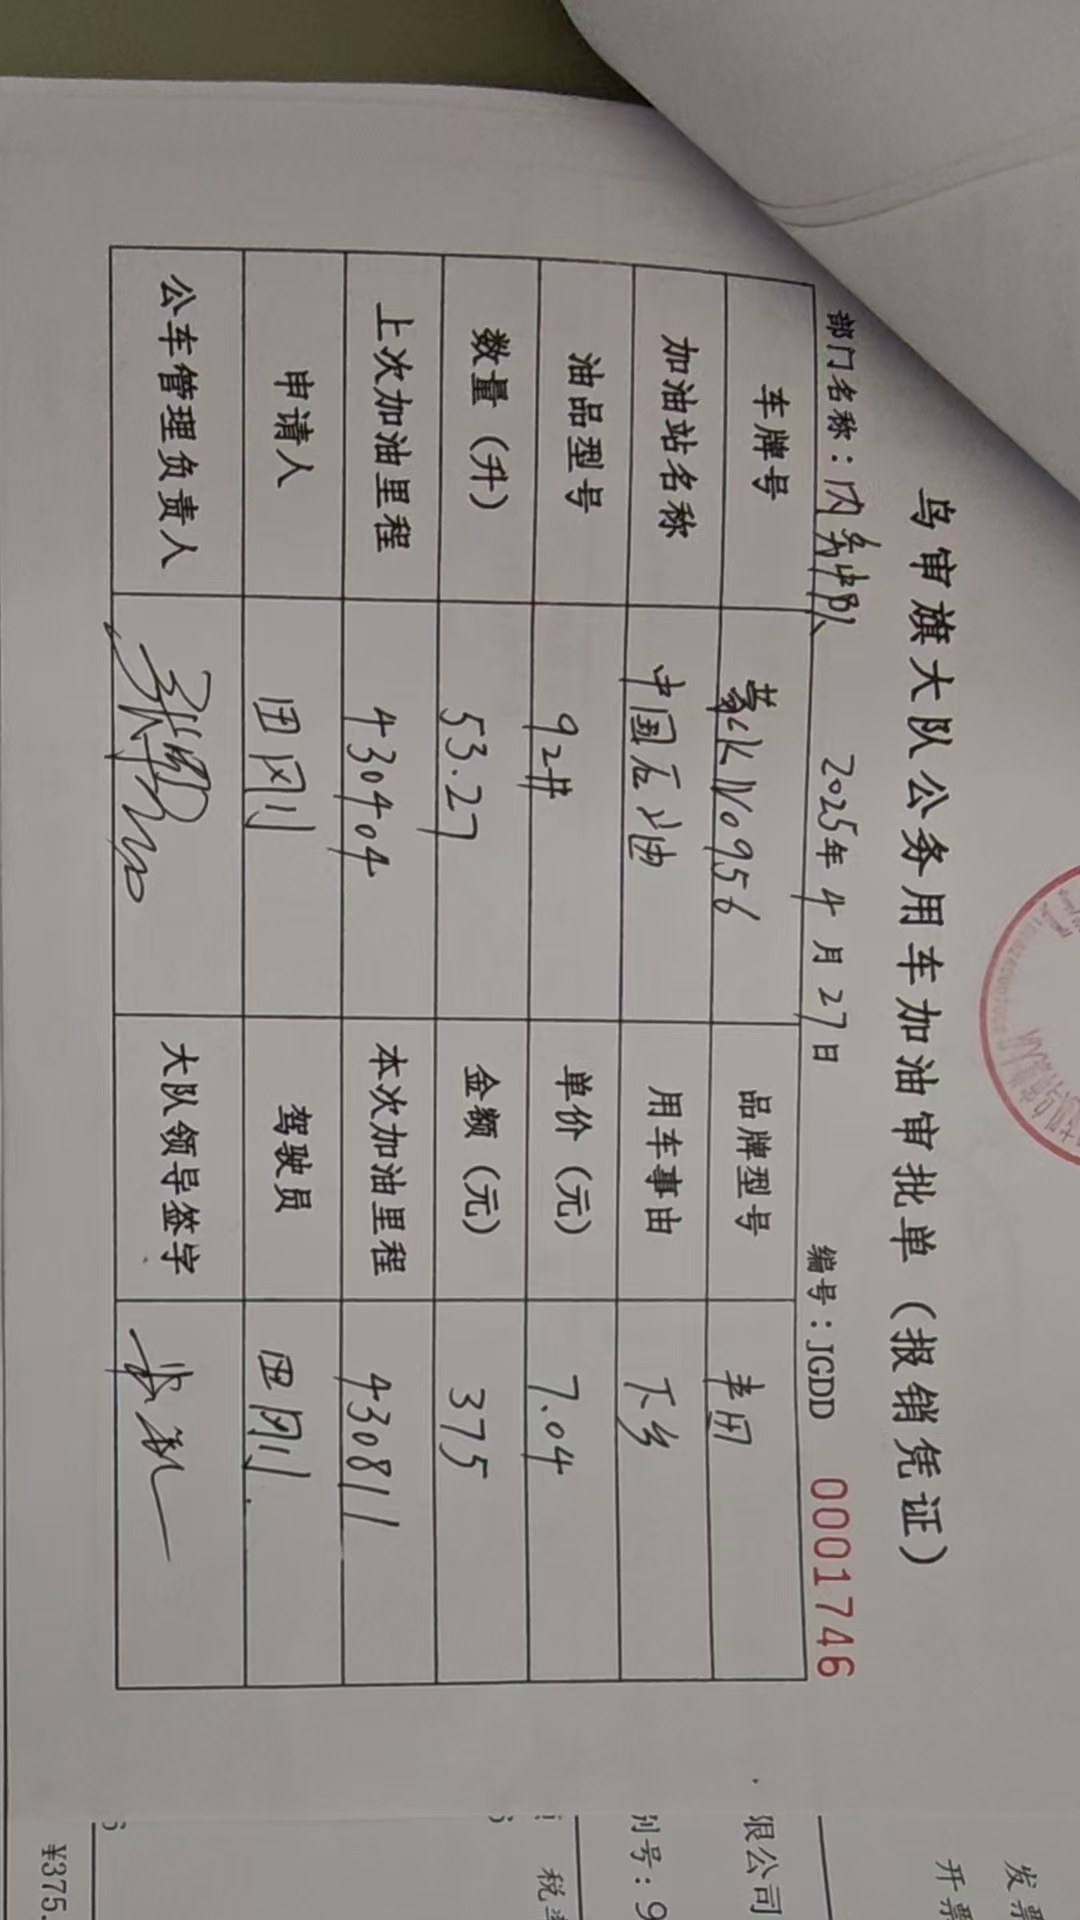 乌审旗大队公务用车加油审批单（报销凭证）
部门名称：内务中队 2025年4月27日 编号：JGDD 0001746
车牌号 蒙KN0956 品牌型号 丰田
加油站名称 中国石油 用车事由 下乡
油品型号 92# 单价（元） 7.04
数量（升） 53.27 金额（元） 375
上次加油里程 430404 本次加油里程 430811
申请人 田刚 驾驶员 田刚
公车管理负责人 大队领导签字
发票
开票
限公司
别号：9
税率
¥375.